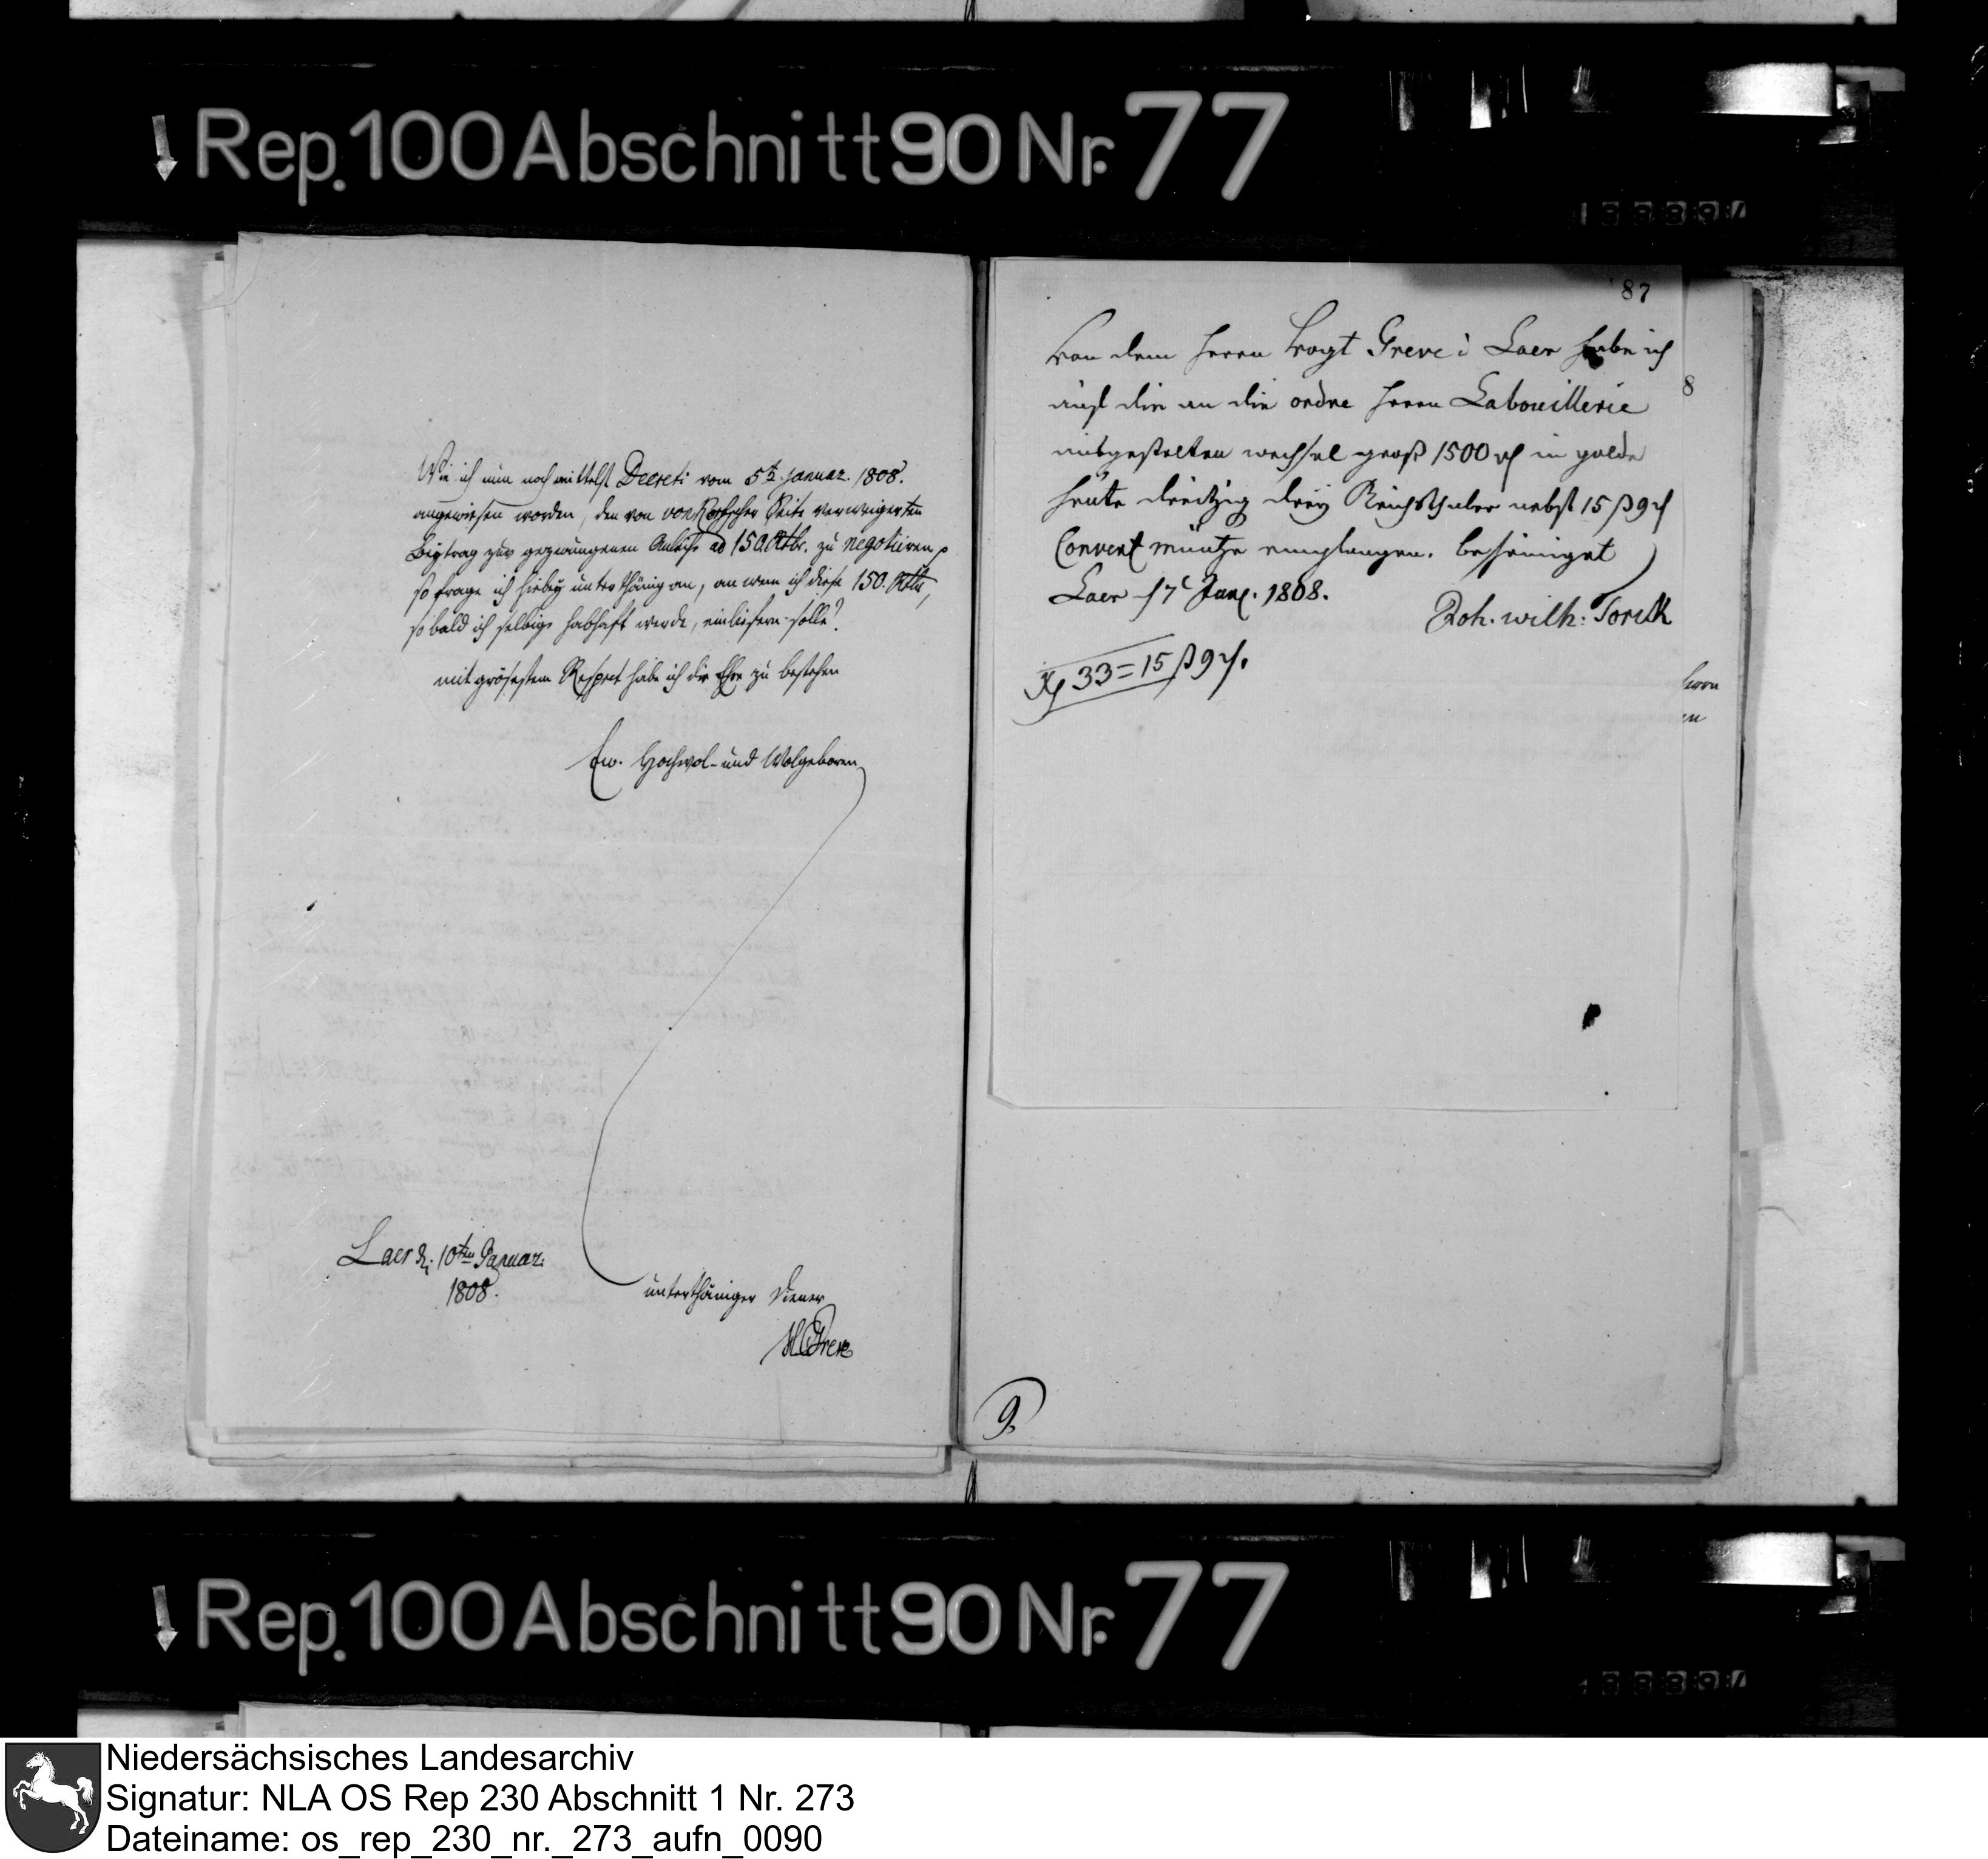 Rep. 100 Abschnitt 90 Nr. 77
Wie ich nun noch mittelst Decreti vom 5t. Januar. 1808.
angewiesen worden, den von von Korffscher Seite verweigerten
Beytrag zur gezwungenen Anleihe ad 150 Rthr. zu negotiiren,
so frage ich hiebey unterthänig an, an wen ich diese 150. Rthr,
so bald ich selbige habhaft werde, einliefern solle?
mit grösestem Respect habe ich die Ehre zu bestehen
Ew. Hochwol- und Wolgeboren
Laer d. 10ten Januar.
1808.
unterthäniger Diener
Greve
87
Von dem Herrn Vogt Greve i Laer habe ich
auf die an die ordre Herrn Labouillerie
ausgestelten wechsel groß 1500 rt in golde
heute dreitzig dreÿ Reichsthaler nebst 15 ß 9 d
Convent müntze empfangen. bescheiniget
Laer 17t Jan. 1808.
Joh. wilh: Torck
Rt 33 = 15 ß 9 d.
8
Herrn
en
9.
Rep. 100 Abschnitt 90 Nr. 77
Niedersächsisches Landesarchiv
Signatur: NLA OS Rep 230 Abschnitt 1 Nr. 273
Dateiname: os_rep_230_nr._273_aufn_0090